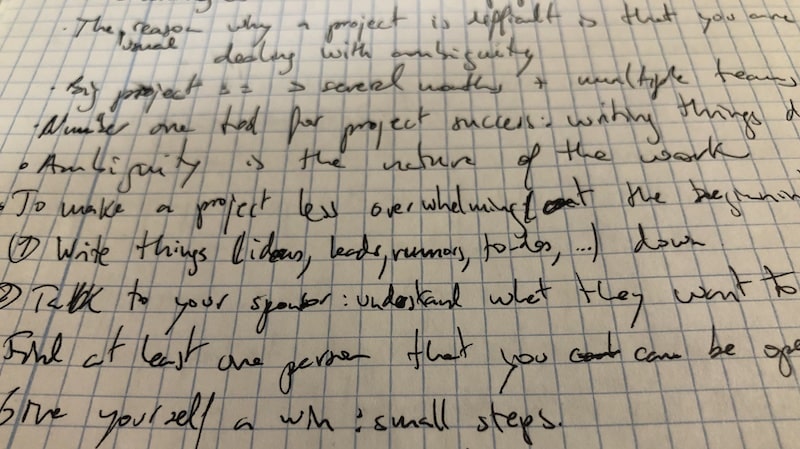 · The reason why a project is difficult is that you are
usual dealing with ambiguity
· Big project == > several months + multiple teams
· Number one tool for project success: writing things d
• Ambiguity is the nature of the work
• To make a project less overwhelming (at the beginnin
① Write things (ideas, leads, rumors, to-dos, ...) down
② Talk to your sponsor: understand what they want to
Find at least one person that you can be ope
Give yourself a win: small steps.